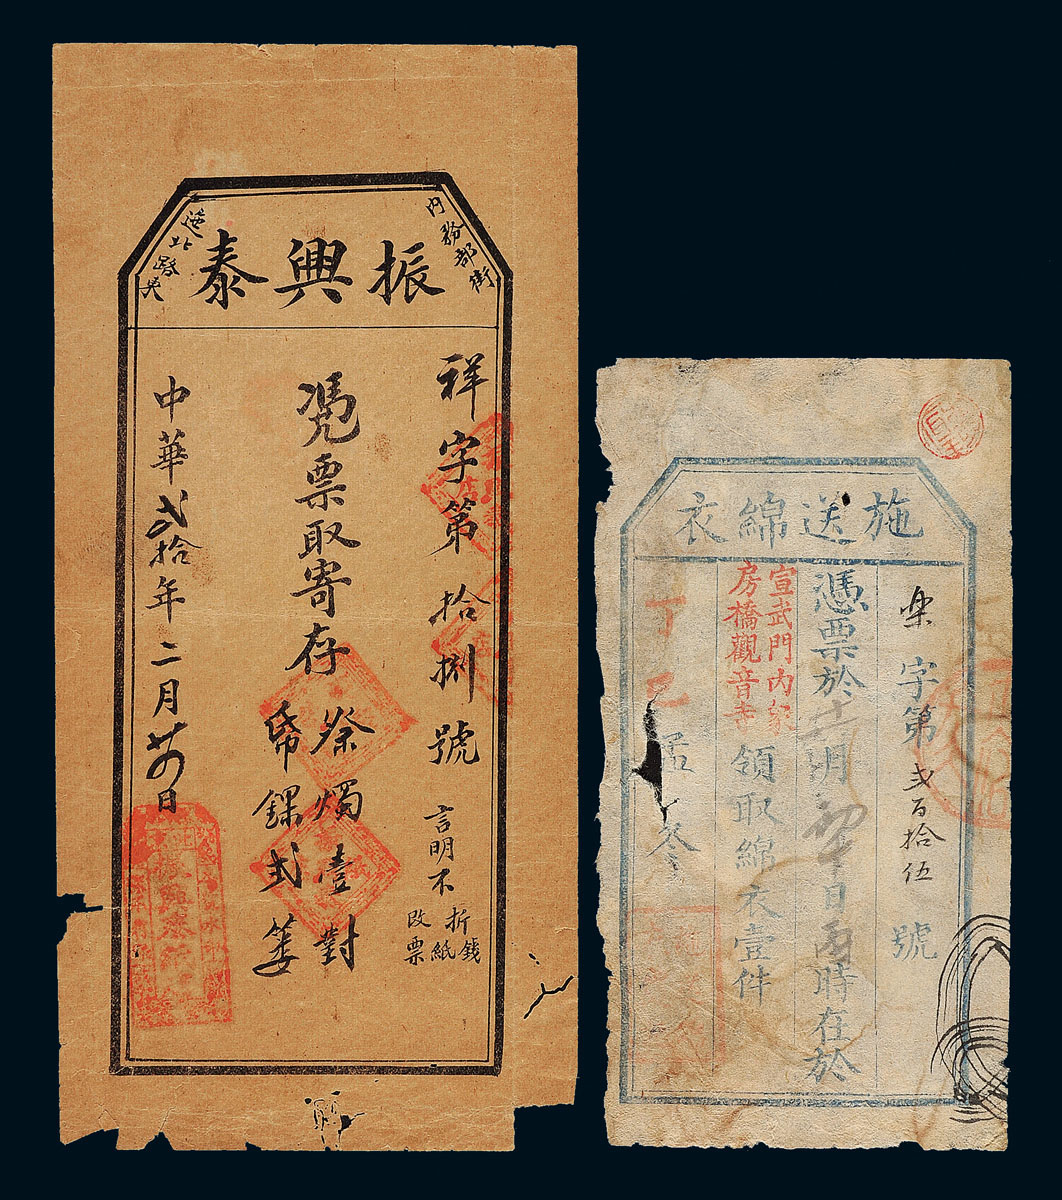 振興泰
內務部街
迤北路東
祥字第拾捌號
言明不
折錢
紙
改票
憑票取寄存
祭燭壹對
帋錁弍簍
中華弍拾年二月廿日
施送綿衣
樂字第弍百拾伍號
憑票於十一月初十日 時在於
宣武門內
房橋觀音寺
領取綿衣壹件
丁巳孟冬